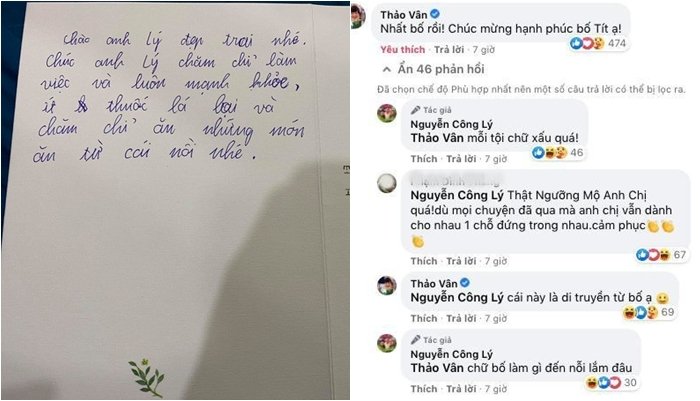 Chúc anh Lý đẹp trai nhé.
Chúc anh Lý chăm chỉ làm
việc và luôn mạnh khỏe,
ít thuốc lá lại và
chăm chỉ ăn những món
ăn từ cái nồi nhé.
Thảo Vân
Nhất bố rồi! Chúc mừng hạnh phúc bố Tít ạ!
474
Yêu thích · Trả lời · 7 giờ
Ẩn 46 phản hồi
Đã chọn chế độ Phù hợp nhất nên một số câu trả lời có thể bị lọc ra.
Tác giả
Nguyễn Công Lý
Thảo Vân mỗi tội chữ xấu quá!
46
Thích · Trả lời · 7 giờ
Nguyễn Công Lý Thật Ngưỡng Mộ Anh Chị
quá!dù mọi chuyện đã qua mà anh chị vẫn dành
cho nhau 1 chỗ đứng trong nhau.cảm phục👏👏
👏
67
Thích · Trả lời · 7 giờ
Thảo Vân
Nguyễn Công Lý cái này là di truyền từ bố ạ 🙂
69
Thích · Trả lời · 7 giờ
Tác giả
Nguyễn Công Lý
Thảo Vân chữ bố làm gì đến nỗi lắm đâu
30
Thích · Trả lời · 7 giờ